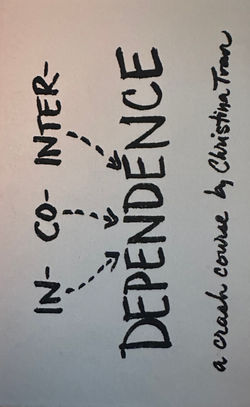 IN- CO- INTER-
DEPENDENCE
a crash course by Christina Tran